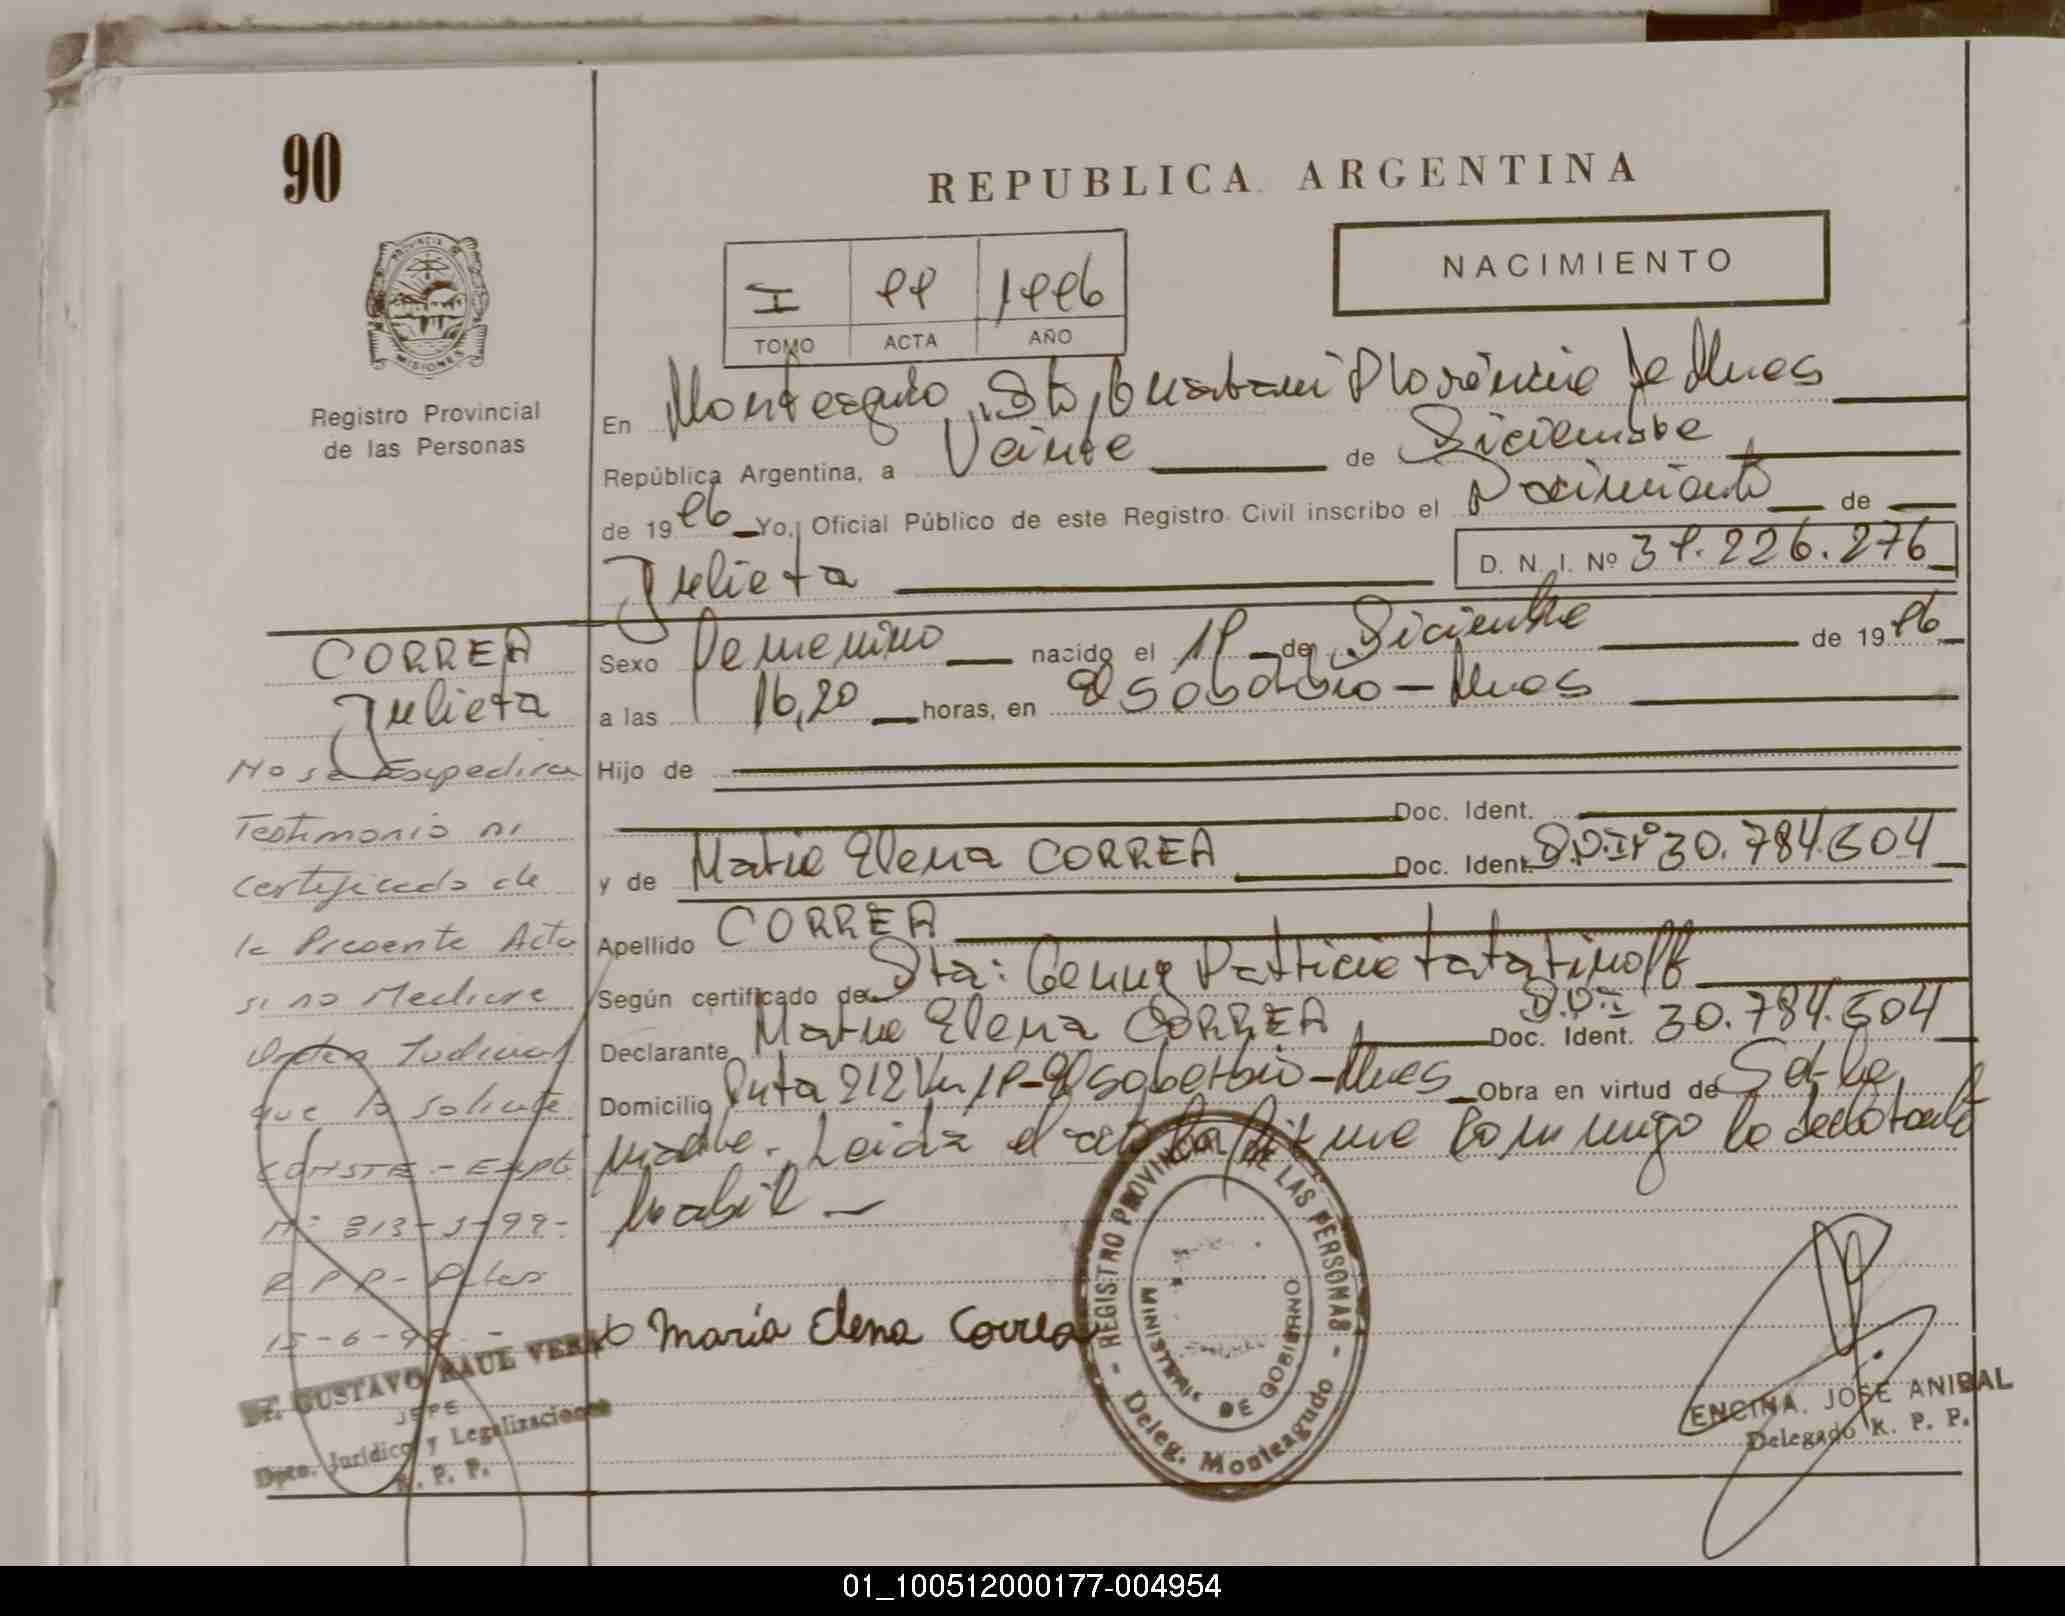 90
REPUBLICA ARGENTINA
NACIMIENTO
PROVINCIA DE MISIONES
Registro Provincial
de las Personas
I 99 1996
TOMO ACTA AÑO
En Monteagudo, Dto, Guarani Provincia de Mnes
República Argentina, a Veinte de Diciembre
de 19 96 Yo, Oficial Público de este Registro Civil inscribo el Nacimiento de
Julieta D. N. I. Nº 39.226.276
CORREA
Julieta
Sexo Femenino nacido el 19 de Diciembre de 19 96
a las 16,20 horas, en El Soberbio - Mnes
Hijo de
Doc. Ident.
y de Maria Elena CORREA Doc. Ident. D.N.I Nº 30.784.604
Apellido CORREA
Según certificado de Sta: Genny Patricia
Declarante Maria Elena CORREA Doc. Ident. D.N.I 30.784.604
Domicilio Ruta 212 Km 19 - El Soberbio - Mnes Obra en virtud de Ser la
madre. Leida el acta la firma conmigo la declarante
habil -
No se Expedira
Testimonio ni
Certificado de
la Presente Acta
si no Mediare
Orden Judicial
que lo solicite
CONSTE - Expte
Nº 813-J-99-
R P P - Pdas
15-6-99. -
Dr. GUSTAVO RAUL VERA
JEFE
Dpto. Jurídico y Legalizaciones
R. P. P.
Maria Elena Correa
- REGISTRO PROVINCIAL DE LAS PERSONAS -
MINISTERIO DE GOBIERNO
Deleg. Monteagudo
ENCINA, JOSE ANIBAL
Delegado R. P. P.
01_100512000177-004954